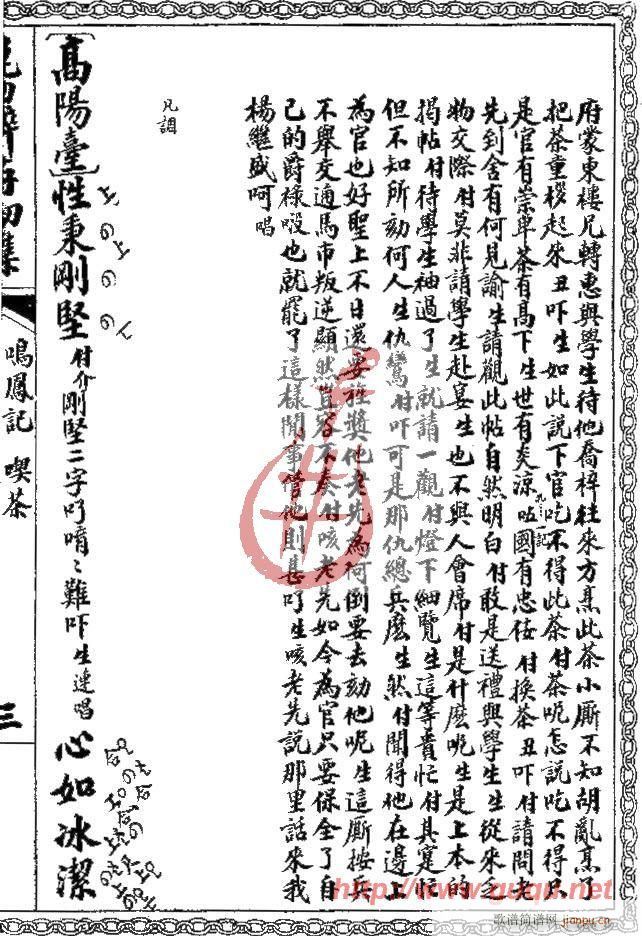 府蒙東樓兄轉惠與學生待他喬梓往來方烹此茶小厮不知胡亂烹了
把茶重拶起來丑吓生如此說下官吃不得此茶付茶呢怎說吃不得只
是官有崇卑茶有高下生世有炎涼 國有忠佞付換茶丑吓付請問老
先到舍有何見諭生請觀此帖自然明白付敢是送禮與學生生從來乏
物交際付莫非請學生赴宴生也不與人會席付是什麽呢生是上本的
揭帖付待學生袖過了生就請一觀付燈下細覽生這等貴忙付其寔忙
但不知所劾何人生仇鸞付吓可是那仇總兵麽生然付聞得他在邊上
為官也好聖上不日還要旌獎他老先為何倒要去劾他呢生這厮按兵
不舉交通馬市叛逆顯然豈容不奏付咳老先如今為官只要保全了自
己的爵祿啵也就罷了這樣閒事管他則甚吓生咳老先說那里話來我
楊繼盛呵唱
凡調
高陽臺 性秉剛堅 付介剛堅二字吓唷〻難吓生連唱 心如冰潔
鳴鳳記 喫茶
三
http://www.guqu.net
歌谱简谱网
jianpu.cn